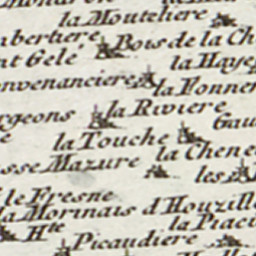 la Mouteliere
bertiere Bois de la Ch
nt Gelé la Haye
nvenanciere la Vonner
rgeons la Riviere
la Touche Gau
sse Mazure la Chene
le Fresne les
la Morinais d'Houzill
la Piac
Hte Picaudiere